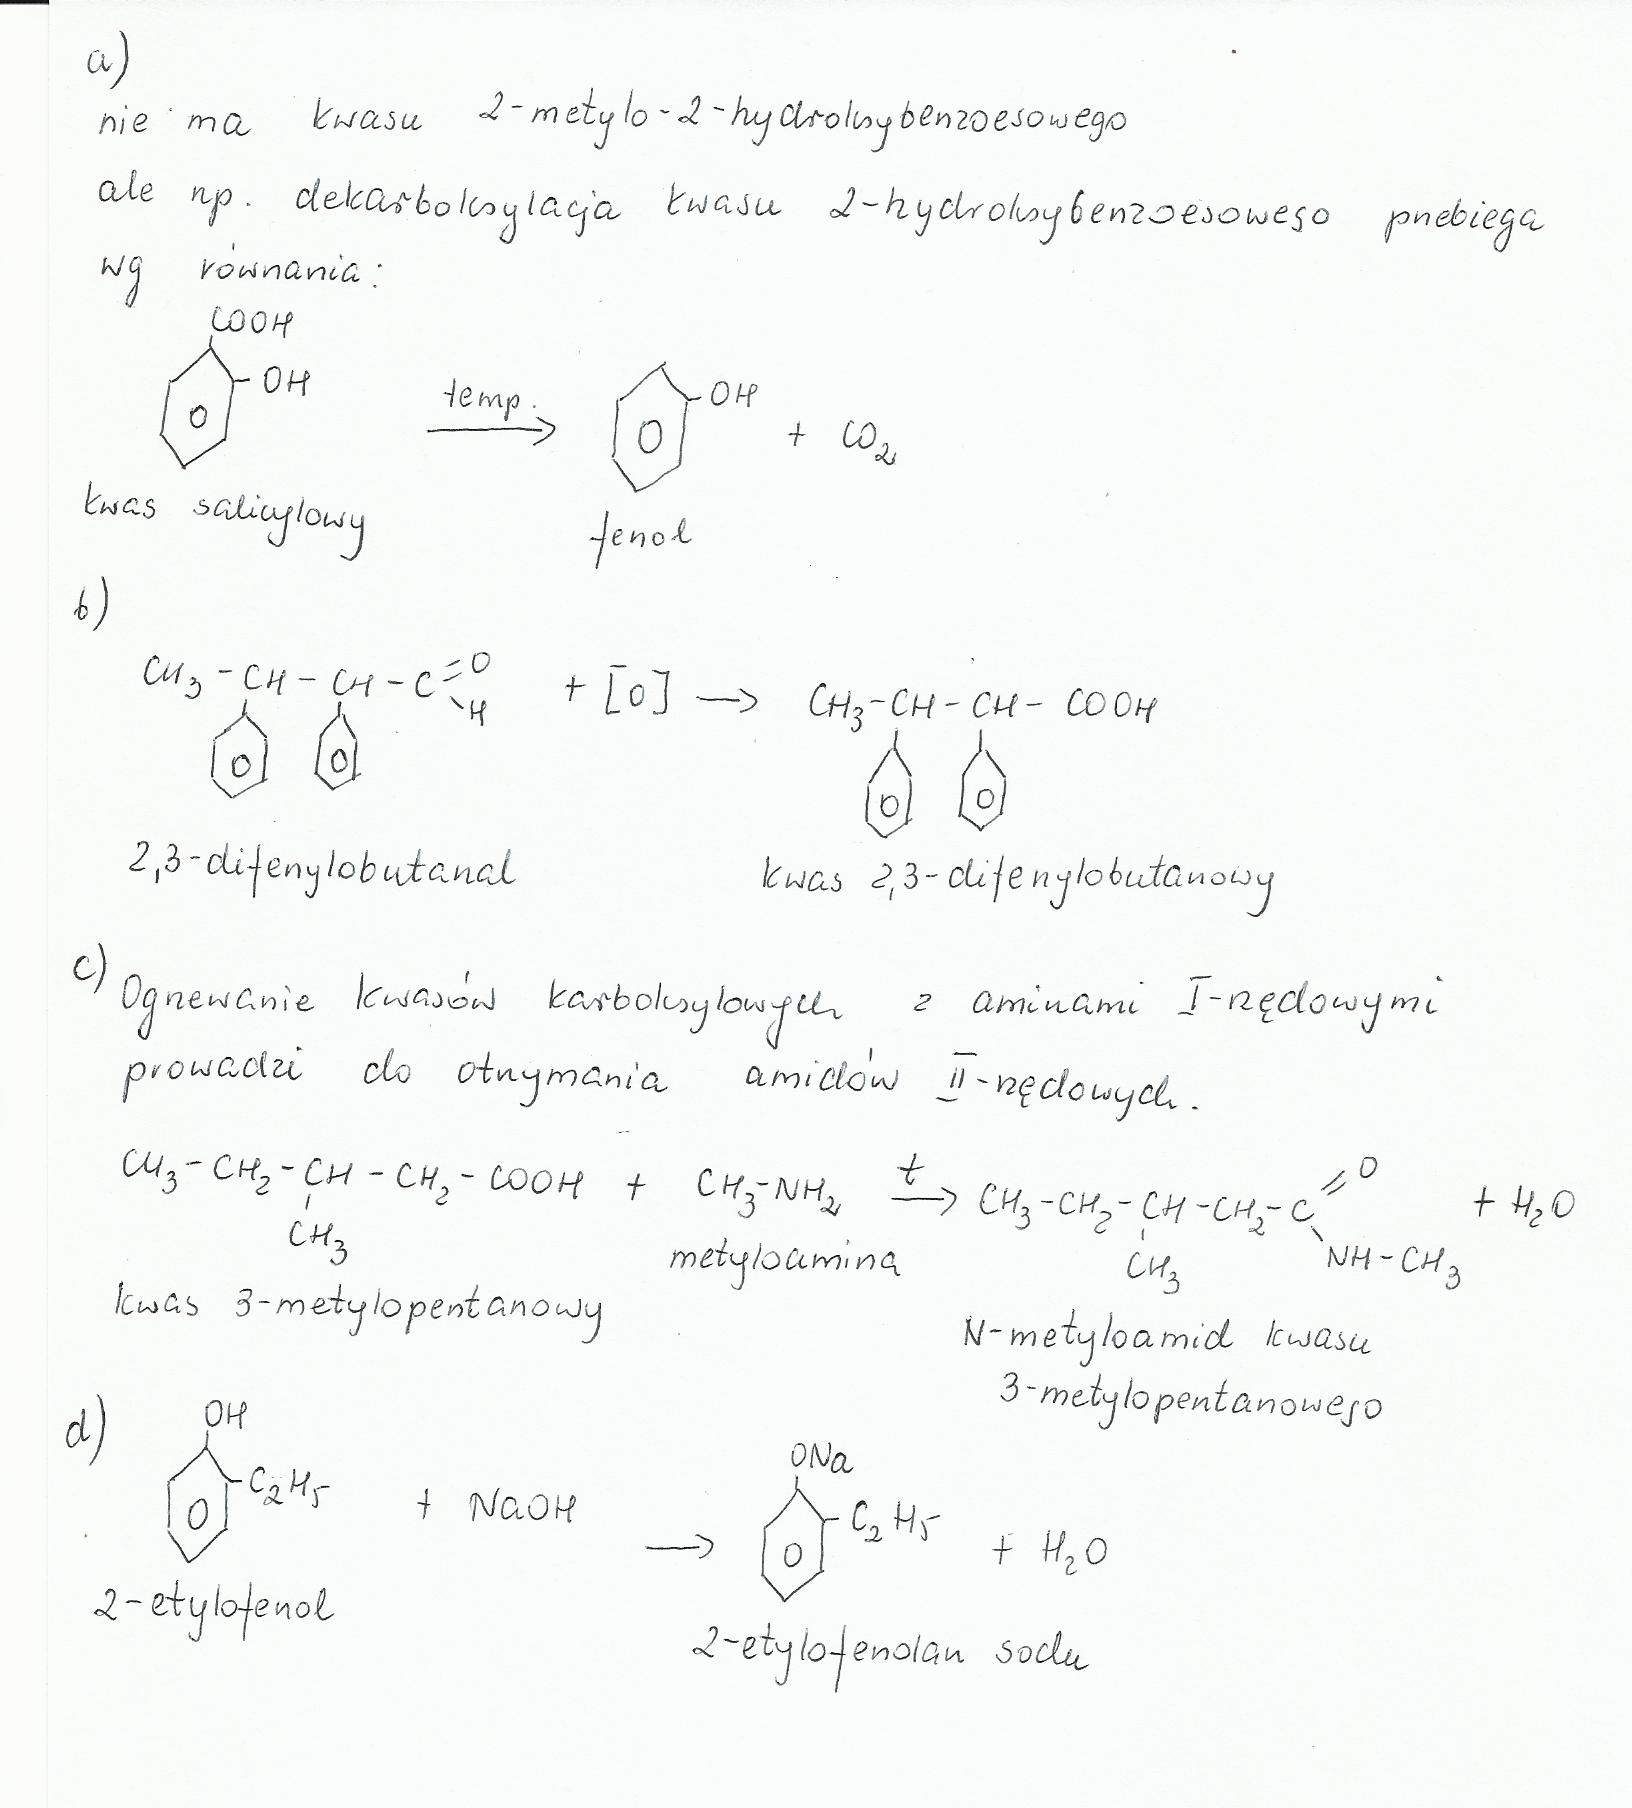 a)
nie ma kwasu 2-metylo-2-hydroksybenzoesowego
ale np. dekarboksylacja kwasu 2-hydroksybenzoesowego przebiega
wg równania:
COOH
OH
temp.
OH
+ CO2
kwas salicylowy
fenol
b)
CH3-CH-CH-C=O
H
+ [O] → CH3-CH-CH-COOH
2,3-difenylobutanal
kwas 2,3-difenylobutanowy
c) Ogrzewanie kwasów karboksylowych z aminami I-rzędowymi
prowadzi do otrzymania amidów II-rzędowych.
CH3-CH2-CH-CH2-COOH + CH3-NH2 t→ CH3-CH2-CH-CH2-C=O + H2O
CH3
CH3
NH-CH3
metyloamina
kwas 3-metylopentanowy
N-metyloamid kwasu
3-metylopentanowego
d)
OH
C2H5
+ NaOH →
ONa
C2H5
+ H2O
2-etylofenol
2-etylofenolan sodu